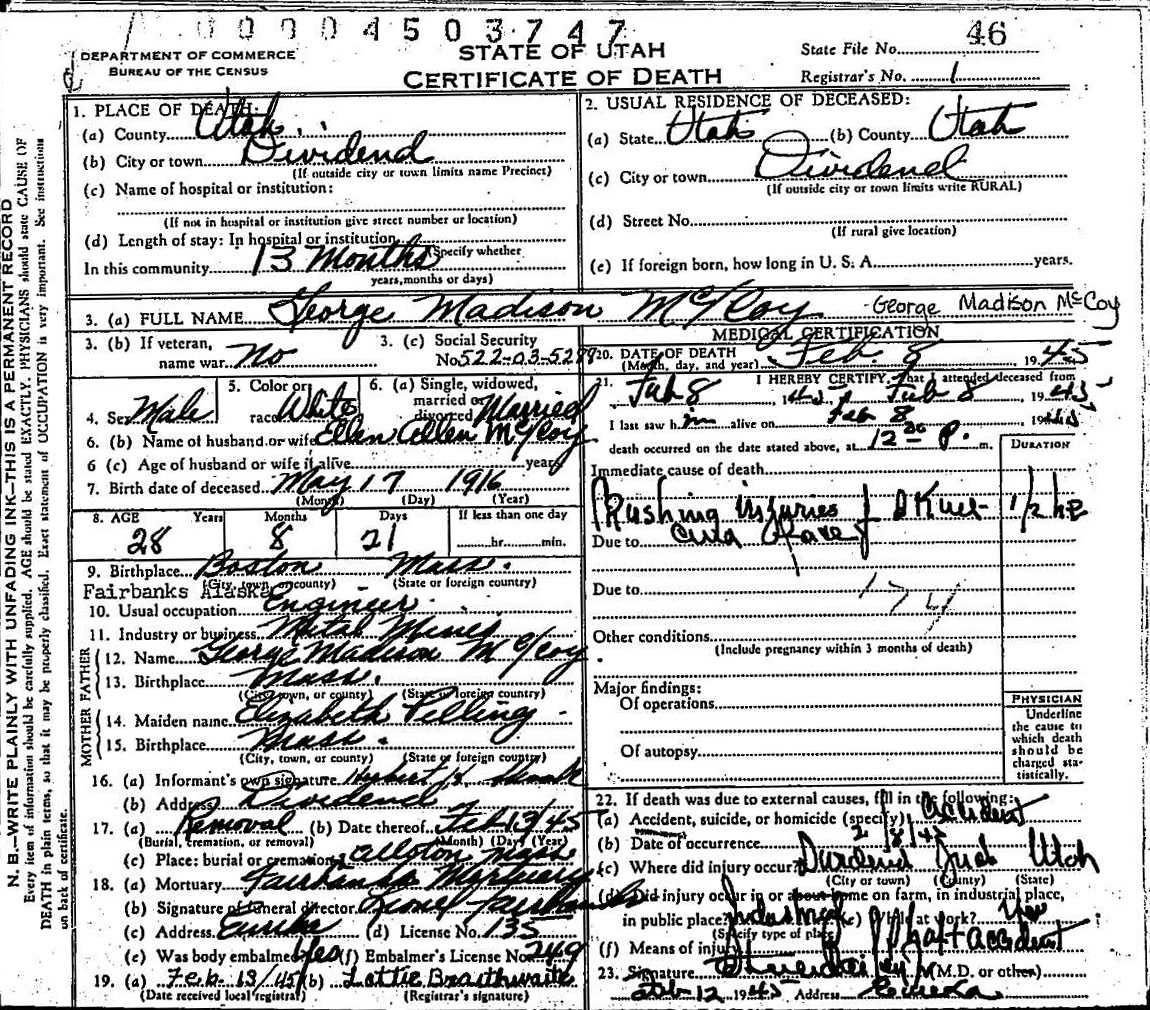 0 0 0 0 4 5 0 3 7 4 7
DEPARTMENT OF COMMERCE
BUREAU OF THE CENSUS
STATE OF UTAH
CERTIFICATE OF DEATH
State File No. 46
Registrar's No. 1
N. B.—WRITE PLAINLY WITH UNFADING INK—THIS IS A PERMANENT RECORD
Every item of information should be carefully supplied. AGE should be stated EXACTLY. PHYSICIANS should state CAUSE OF
DEATH in plain terms, so that it may be properly classified. Exact statement of OCCUPATION is very important. See instructions
on back of certificate.
1. PLACE OF DEATH:
(a) County Utah
(b) City or town Dividend
(If outside city or town limits name Precinct)
(c) Name of hospital or institution:
(If not in hospital or institution give street number or location)
(d) Length of stay: In hospital or institution
(Specify whether
In this community 13 Months
years, months or days)
2. USUAL RESIDENCE OF DECEASED:
(a) State Utah (b) County Utah
(c) City or town Dividend
(If outside city or town limits write RURAL)
(d) Street No.
(If rural give location)
(e) If foreign born, how long in U. S. A. years.
3. (a) FULL NAME George Madison McCoy - George Madison McCoy
3. (b) If veteran,
name war No
3. (c) Social Security
No. 522-03-5289
4. Sex Male
5. Color or
race White
6. (a) Single, widowed,
married or
divorced Married
6. (b) Name of husband or wife Ellen Allen McCoy
6 (c) Age of husband or wife if alive years
7. Birth date of deceased May 17 1916
(Month) (Day) (Year)
8. AGE Years Months Days If less than one day
28 8 21 hr. min.
9. Birthplace Boston Mass.
(City, town, or county) (State or foreign country)
Fairbanks Alaska
10. Usual occupation Engineer
11. Industry or business Metal Mines
FATHER
12. Name George Madison McCoy
13. Birthplace Mass.
(City, town, or county) (State or foreign country)
MOTHER
14. Maiden name Elizabeth Pelling
15. Birthplace Mass.
(City, town, or county) (State or foreign country)
16. (a) Informant's own signature
(b) Address Dividend
17. (a) Removal (b) Date thereof Feb 13/45
(Burial, cremation, or removal) (Month) (Day) (Year)
(c) Place: burial or cremation Allston Mass
18. (a) Mortuary Fairbanks Mortuary
(b) Signature of funeral director Lionel Fairbanks
(c) Address Eureka (d) License No. 135
(e) Was body embalmed Yes (f) Embalmer's License No. 249
19. (a) Feb. 13/45 (b) Lottie Braithwaite
(Date received local registrar) (Registrar's signature)
MEDICAL CERTIFICATION
20. DATE OF DEATH Feb. 8 1945
(Month, day, and year)
21. I HEREBY CERTIFY, That I attended deceased from
Feb 8 1945, Feb 8 1945
I last saw him alive on Feb 8 1945
death occurred on the date stated above, at 12 30 P. m.
DURATION
Immediate cause of death
Crushing injuries of 1/2 hr
Due to
Due to
174
Other conditions
(Include pregnancy within 3 months of death)
Major findings:
Of operations
Of autopsy
PHYSICIAN
Underline
the cause to
which death
should be
charged sta-
tistically.
22. If death was due to external causes, fill in the following:
(a) Accident, suicide, or homicide (specify) Accident
(b) Date of occurrence 2/8/45
(c) Where did injury occur? Dividend Utah
(City or town) (County) (State)
(d) Did injury occur in or about home on farm, in industrial place,
in public place? Industrial (e) While at work? Yes
(Specify type of place)
(f) Means of injury Shaft accident
23. Signature (M.D. or other)
Feb 12 1945 Address Eureka